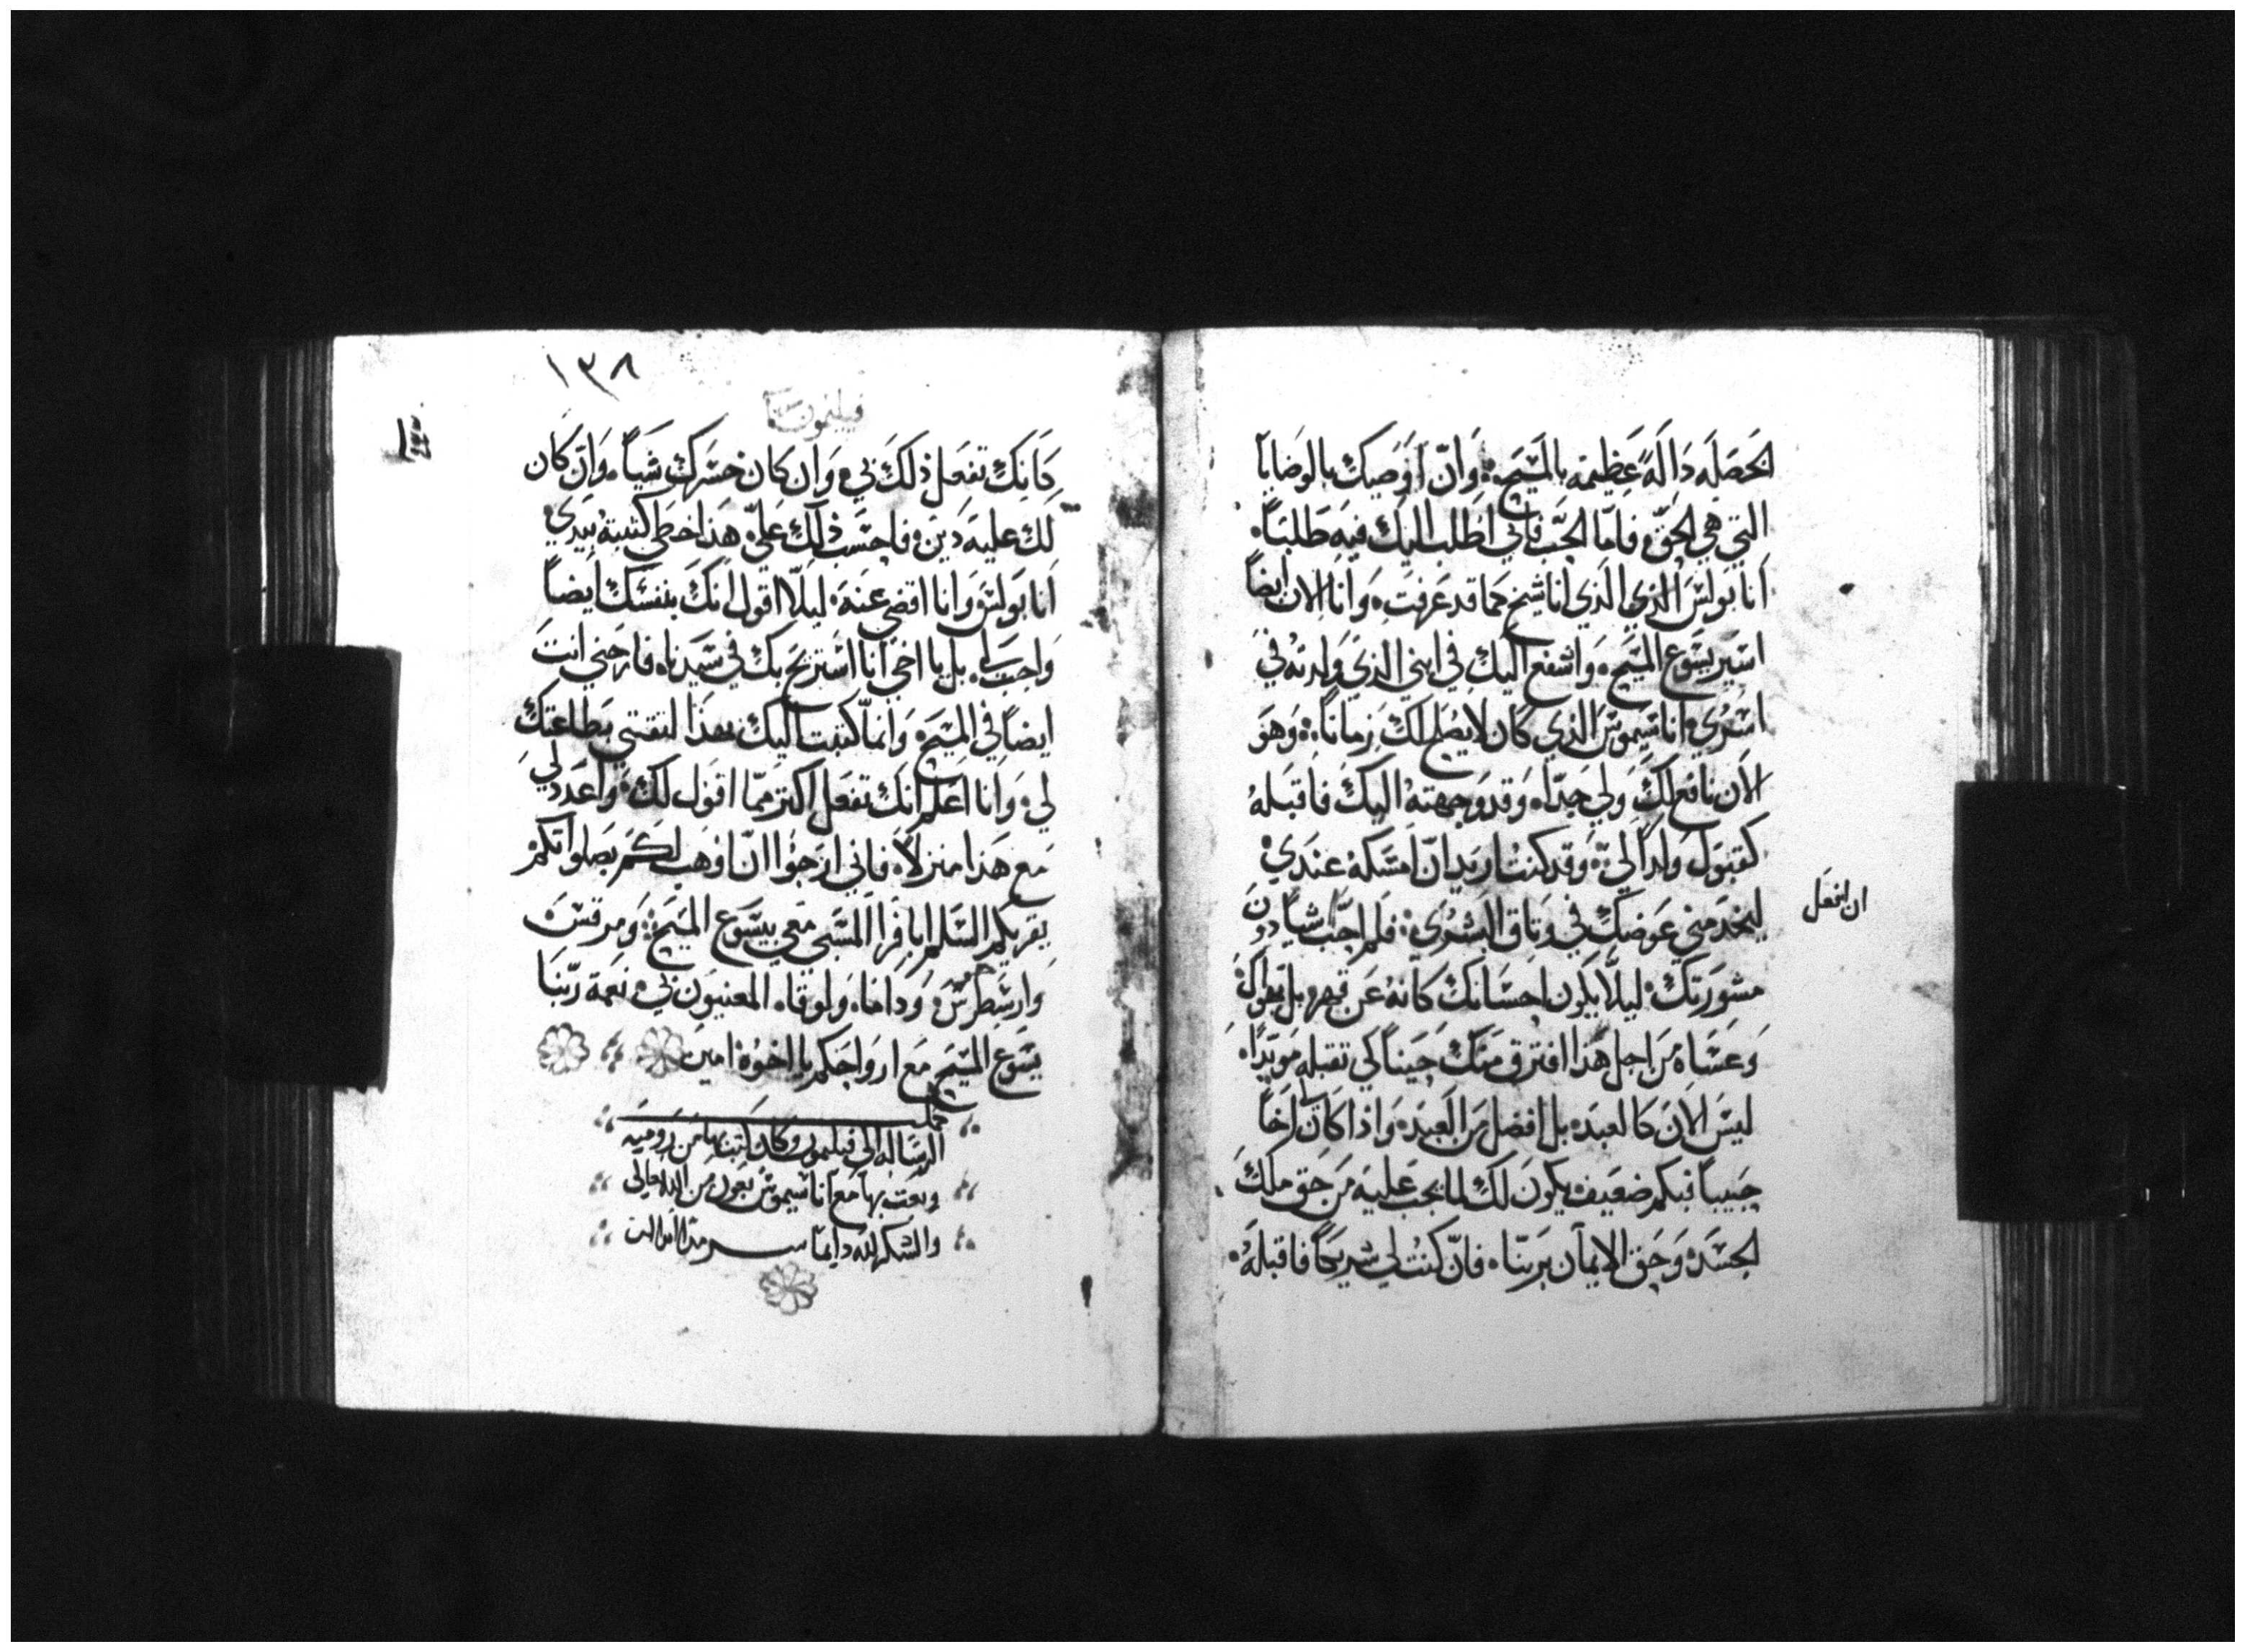 لتحصله دَالَةً عَظِيمَه بالمَسِيح وَانّ اُوَصيك بالوصَايا
التي هي الحَقّ فامّا الحُبّ فاني اطلب اليَك فيه طلبَاً
انا بَولسَ الذي الذي انا شيخ كما قد عَرفتَ وَانا الان ايضاً
اسَير يسَوع المسَيح وَاشفع اليَك في ابني الذي وَلدته في
اسَري اناسَيموسَ الذي كان لا يصَلح لك زماناً وَهوَ
الان نافع لك وَلي جدّاً وَقد وَجهته اليَك فاقبله
كقبَول وَلداً لي وَقد كنت اريد انّ امسَكه عندي
ليخدمني عَوضك في وَتاق البشرَي فلم احبّ شياً دون
ان افعَل
مشوَرتك ليلّا يكون احسَانك كانه عَن قهر بل بهواك
وَعسَاه مَن اجل هَذا افترق مَنك حيَناً لكي تقبله موبّداً
ليسَ الان كالعبَد بل افضل مَن العَبد وَاذا كان لي اخاً
حبَيباً فبكم ضعيَف يكون لك لما يجب عَليه مَن حَق ملك
الجسَد وَحَق الايمان برَبنا فانّ كنت لي شريكاً فاقبله
١٣٨
فيليمون
كَانك تفعَل ذلك بي وَان كان خسَرك شيَاً وَانّ كان
لك عليَه دَين فاحسَب ذلك عَليّ هَذا خطي كتبته بيَدي
انا بَولسَ وَانا اقضي عَنه ليلّا اقول انك بنفسَك ايضاً
وَاجب لي بل يا اخي انا اسَتريَح بك في سَيدنا فارحني انتَ
ايضاً في المسَيح وَانما كتبت اليَك بهذا لتقتي بطاعتك
لي وَانا اعَلم انك تفعَل اكتر ممّا اقوَل لك وَاعَدد لي
مَع هَذا منزلاً فاني ارَجوا انّ اوهَب لكم بصَلواتكم
يقريكم السَلم ابافرا المسَبي معَي بيسَوع المسَيح وَمرقسَ
وَارسَطرخسَ وَداماَ وَلوقا المعنيوَن بي نعَمة ربّنا
يسَوع المسَيح مَع ارواحَكم يا اخوة امين
كملت
الرسَاله الى فيليمون وكان كتبَ بها مَن روميه
وبعَت بها مَع اناسَيموسَ بعَون مَن الله تعالى
والشكر لله دايماً سرمدا